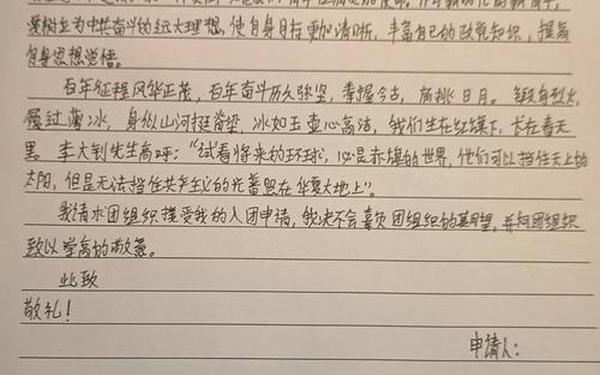 要树立为中共奋斗的远大理想，使自身目标更加清晰，丰富自己的政党知识，提高
自身思想觉悟。
百年征程风华正茂，百年奋斗历久弥坚，掌握今古，肩挑日月。锻自烈火，
履过薄冰，身似山河挺脊梁，冰如玉壶心高洁，我们生在红旗下，长在春天
里。李大钊先生高呼："试看将来的环球，必是赤旗的世界，他们可以挡住天上的
太阳，但是无法挡住共产主义的光普照在华夏大地上"。
我请求团组织接受我的入团申请，我决不会辜负团组织的期望，并向团组织
致以崇高的敬意。
此致
敬礼！
申请人：